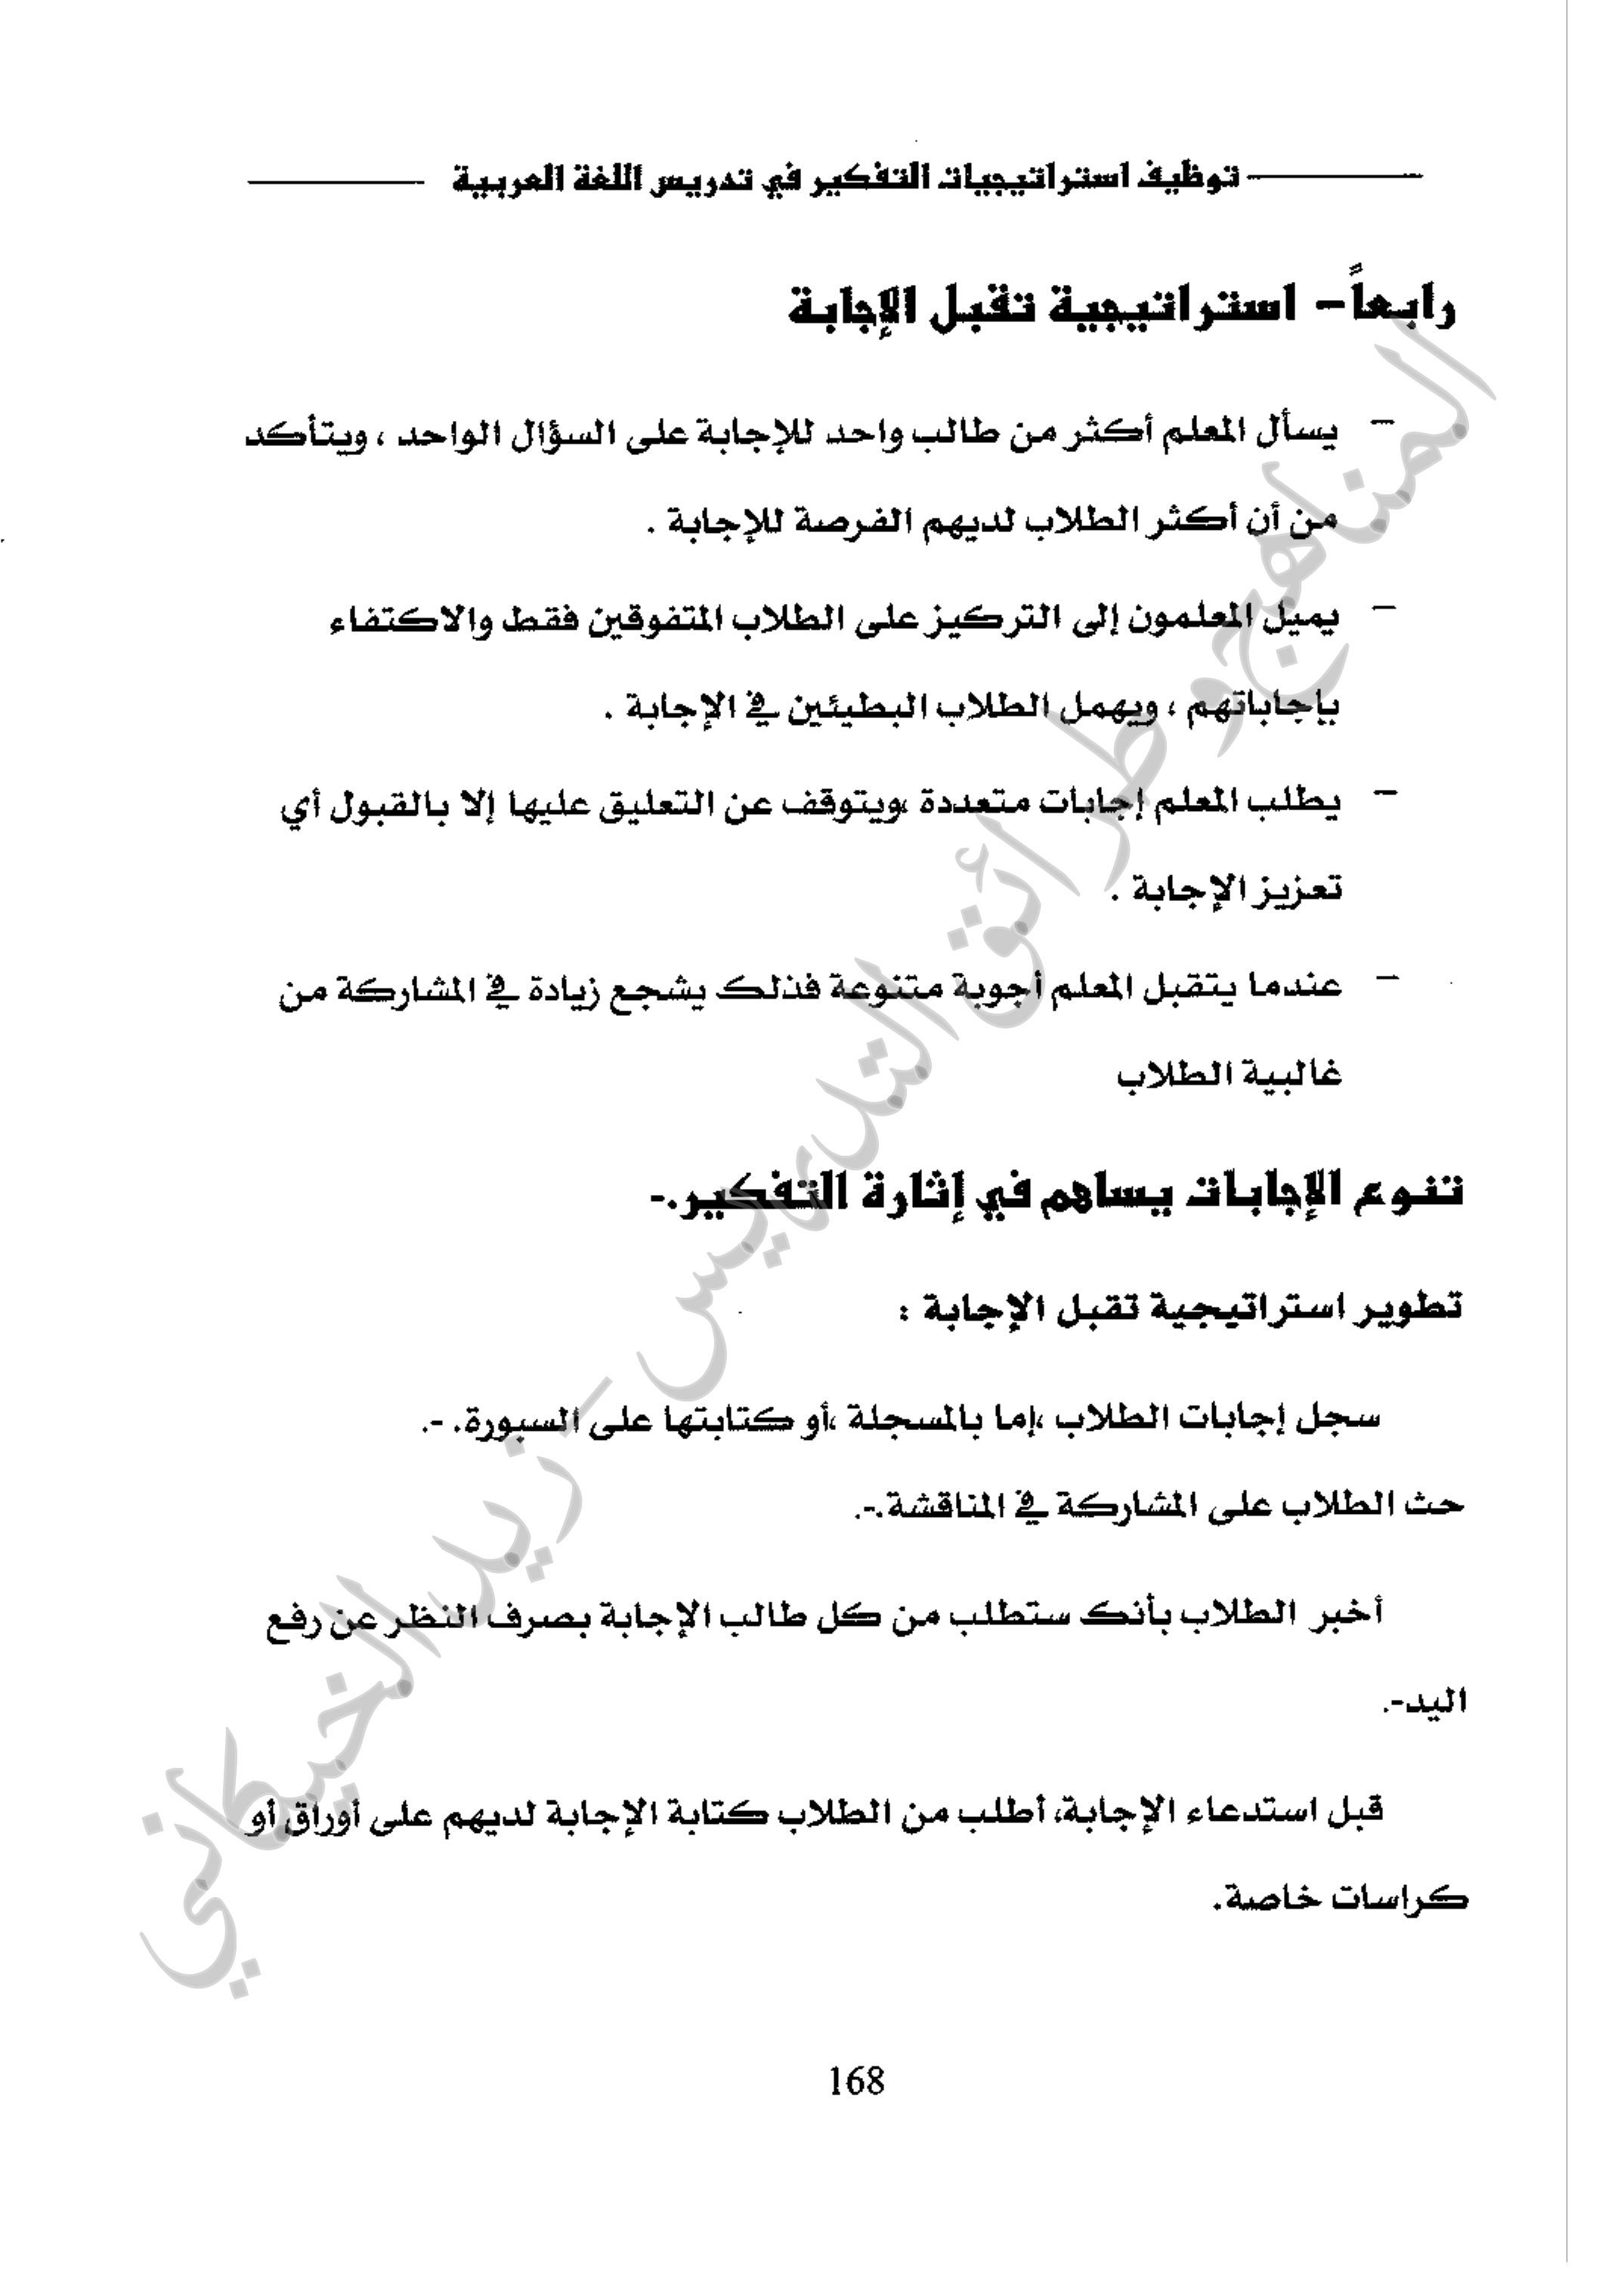 توظيف استراتيجيات التفكير في تدريس اللغة العربية
رابعاً – استراتيجية تقبل الإجابة
– يسأل المعلم أكثر من طالب واحد للإجابة على السؤال الواحد ، ويتأكد
من أن أكثر الطلاب لديهم الفرصة للإجابة .
– يميل المعلمون إلى التركيز على الطلاب المتفوقين فقط والاكتفاء
بإجاباتهم ، ويهمل الطلاب البطيئين في الإجابة .
– يطلب المعلم إجابات متعددة ،ويتوقف عن التعليق عليها إلا بالقبول أي
تعزيز الإجابة .
– عندما يتقبل المعلم أجوبة متنوعة فذلك يشجع زيادة في المشاركة من
غالبية الطلاب
تنوع الإجابات يساهم في إثارة التفكير.-
تطوير استراتيجية تقبل الإجابة :
سجل إجابات الطلاب ،إما بالمسجلة ،أو كتابتها على السبورة. -.
حث الطلاب على المشاركة في المناقشة.-.
أخبر الطلاب بأنك ستطلب من كل طالب الإجابة بصرف النظر عن رفع
اليد-.
قبل استدعاء الإجابة، أطلب من الطلاب كتابة الإجابة لديهم على أوراق أو
كراسات خاصة.
168
المناهج وطرائق التدريس - زيد الخيكاني